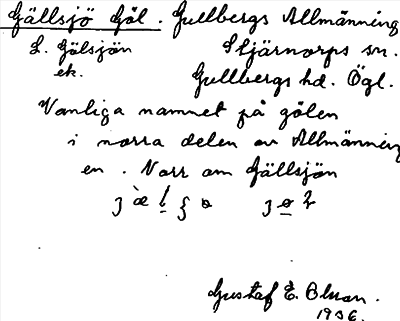 Gällsjö Göl. Gullbergs Allmänning
L. Gölsjön Stjärnorps sn.
ek. Gullbergs hd. Ögl.
Vanliga namnet på gölen
i norra delen av Allmänning
en. Norr om Gällsjön
Gustaf E. Olsson.
1936.